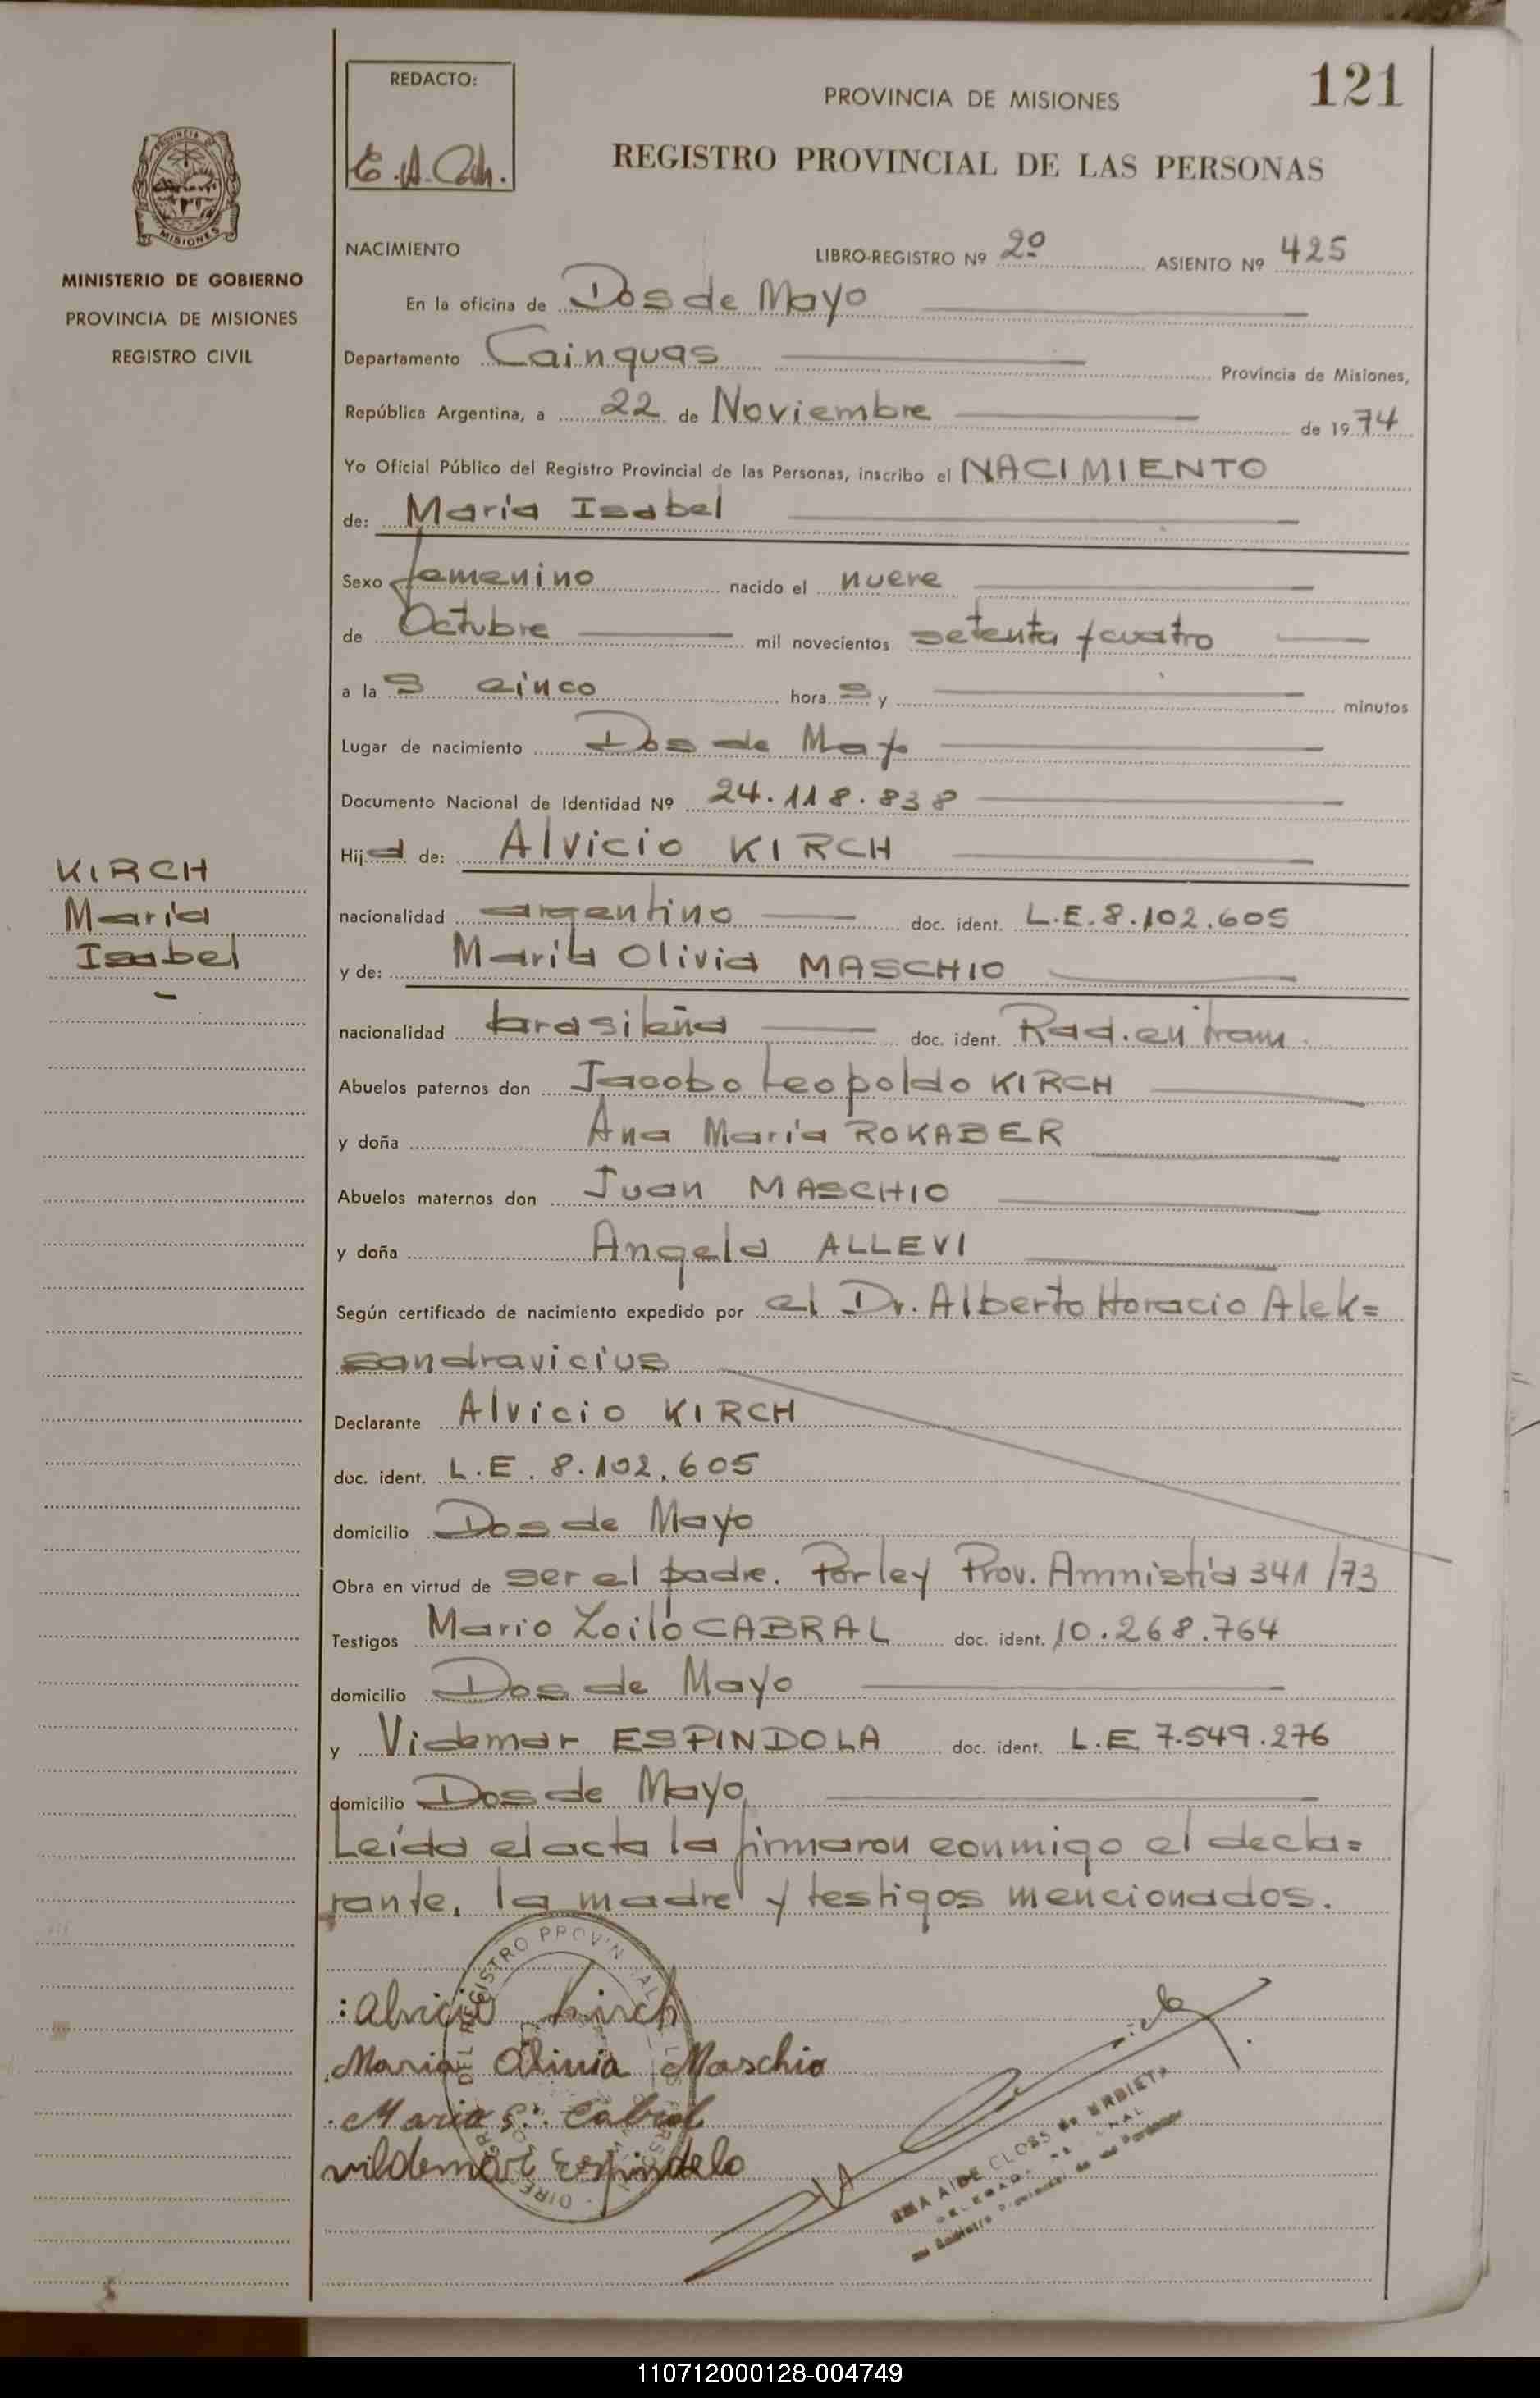 121
REDACTO:
PROVINCIA DE MISIONES
REGISTRO PROVINCIAL DE LAS PERSONAS
MISIONES
MINISTERIO DE GOBIERNO
PROVINCIA DE MISIONES
REGISTRO CIVIL
NACIMIENTO LIBRO-REGISTRO Nº 2º ASIENTO Nº 425
En la oficina de Dos de Mayo
Departamento Cainguas Provincia de Misiones,
República Argentina, a 22 de Noviembre de 1974
Yo Oficial Público del Registro Provincial de las Personas, inscribo el NACIMIENTO
de: María Isabel
Sexo femenino nacido el nueve
de Octubre mil novecientos setenta y cuatro
a la s cinco hora s y minutos
Lugar de nacimiento Dos de Mayo
Documento Nacional de Identidad Nº 24.118.838
Hija de: Alvicio KIRCH
KIRCH
María
Isabel
nacionalidad argentino doc. ident. L.E.8.102.605
y de: María Olivia MASCHIO
nacionalidad brasileña doc. ident. Rad. en tram.
Abuelos paternos don Jacobo Leopoldo KIRCH
y doña Ana María ROKABER
Abuelos maternos don Juan MASCHIO
y doña Angela ALLEVI
Según certificado de nacimiento expedido por el Dr. Alberto Horacio Alek=
sandravicius
Declarante Alvicio KIRCH
doc. ident. L.E. 8.102.605
domicilio Dos de Mayo
Obra en virtud de ser el padre. Por ley Prov. Amnistía 341/73
Testigos Mario Zoilo CABRAL doc. ident. 10.268.764
domicilio Dos de Mayo
y Videmar ESPINDOLA doc. ident. L.E. 7.549.276
domicilio Dos de Mayo
Leída el acta la firmaron conmigo el decla=
rante, la madre y testigos mencionados.
Alvicio Kirch
Maria Olivia Maschio
Mario Cabral
vildemar Espindelo
110712000128-004749